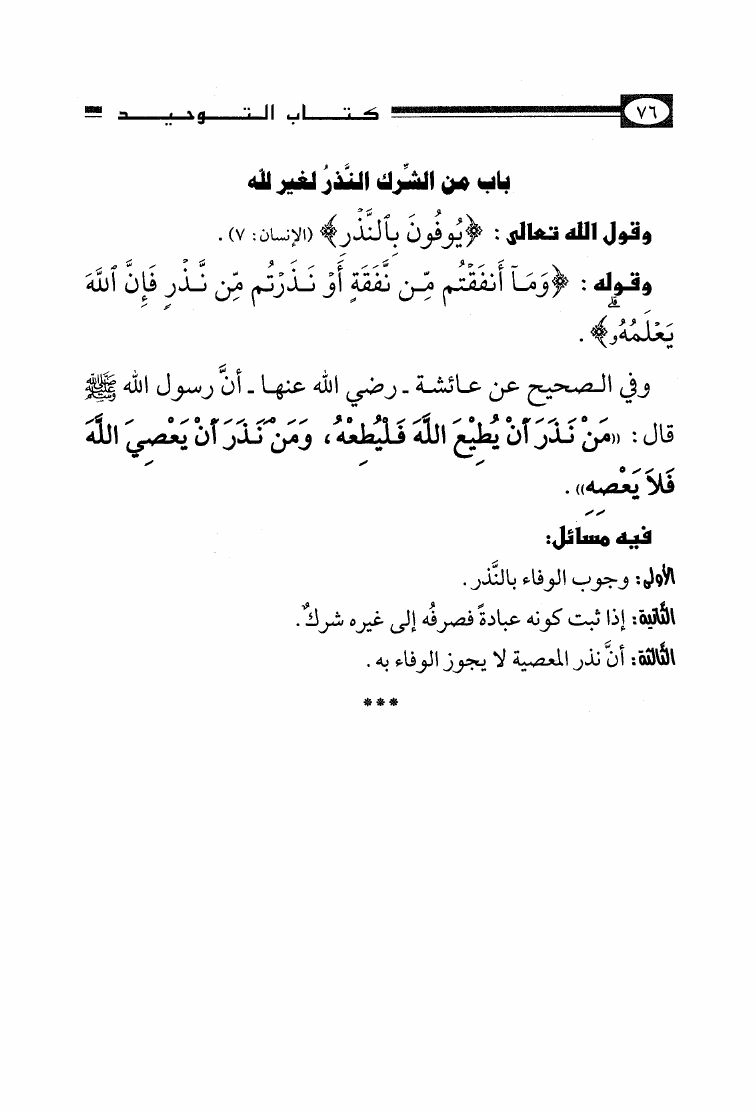 ٧٦ كتاب التوحيد
باب من الشِّرك النَّذرُ لغير لله
وقول الله تعالى : ﴿يُوفُونَ بِٱلنَّذۡرِ﴾ (الإنسان: ٧) .
وقوله : ﴿وَمَآ أَنفَقۡتُم مِّن نَّفَقَةٍ أَوۡ نَذَرۡتُم مِّن نَّذۡرٖ فَإِنَّ ٱللَّهَ
يَعۡلَمُهُۥۗ﴾ .
وفي الصحيح عن عائشة ـ رضي الله عنها ـ أنَّ رسول الله ﷺ
قال : «مَنْ نَذَرَ أَنْ يُطِيْعَ اللَّهَ فَلْيُطِعْهُ، وَمَنْ نَذَرَ أَنْ يَعْصِيَ اللَّهَ
فَلاَ يَعْصِهِ» .
فيه مسائل:
الأولى: وجوب الوفاء بالنَّذر .
الثَّانية: إذا ثبت كونه عبادةً فصرفُه إلى غيره شركٌ .
الثَّالثة: أنَّ نذر المعصية لا يجوز الوفاء به .
***